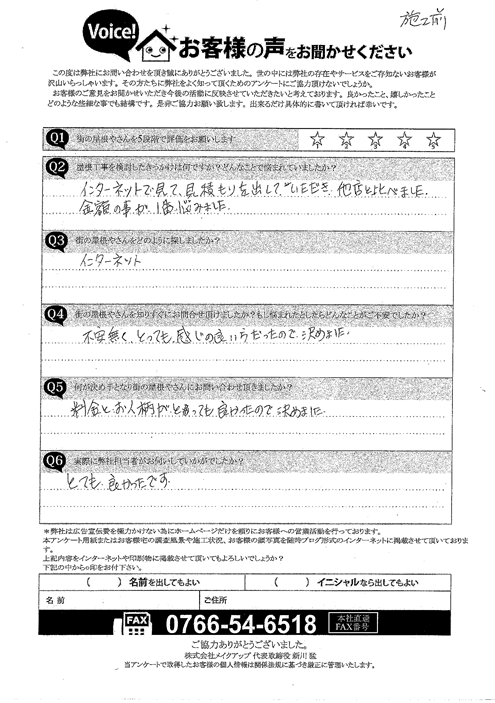 施工前
Voice! お客様の声をお聞かせください
この度は弊社にお問い合わせを頂き誠にありがとうございました。世の中には弊社の存在やサービスをご存知ないお客様が
沢山いらっしゃいます。その方たちに弊社をよく知って頂くためのアンケートにご協力頂けないでしょうか。
お客様のご意見をお聞かせいただき今後の活動に反映させていただきたいと考えております。良かったこと、嬉しかったこと
どのような些細な事でも結構です。是非ご協力お願い致します。出来るだけ具体的に書いて頂ければ幸いです。
Q1 街の屋根やさんを5段階で評価をお願いします ☆ ☆ ☆ ☆ ☆
Q2 屋根工事を検討したきっかけは何ですか?どんなことで悩まれていましたか?
インターネットで見て、見積もりを出していただき、他店とくらべました。
金額の事が、1番悩みました。
Q3 街の屋根やさんをどのように探しましたか?
インターネット
Q4 街の屋根やさんを知りすぐにお問合せ頂けましたか?もし悩まれたとしたらどんなことがご不安でしたか?
不安無く、とっても感じの良い だったので、決めました。
Q5 何が決め手となり街の屋根やさんにお問い合わせ頂きましたか?
料金と、お人柄がとっても良かったので決めました。
Q6 実際に弊社担当者がお伺いしていかがでしたか?
とても、良かったです。
*弊社は広告宣伝費を極力かけない為にホームページだけを頼りにお客様への営業活動を行っております。
本アンケート用紙またはお客様宅の調査風景や施工状況、お客様の顔写真を随時ブログ形式のインターネットに掲載させて頂いておりま
す。
上記内容をインターネットや印刷物に掲載させて頂いてもよろしいでしょうか?
下記の中から○印をお付下さい。
( )名前を出してもよい ( )イニシャルなら出してもよい
名前 ご住所
FAX 0766-54-6518 本社直通 FAX番号
ご協力ありがとうございました。
株式会社メイクアップ 代表取締役 新川 猛
当アンケートで取得したお客様の個人情報は関係法規に基づき厳正に管理いたします。